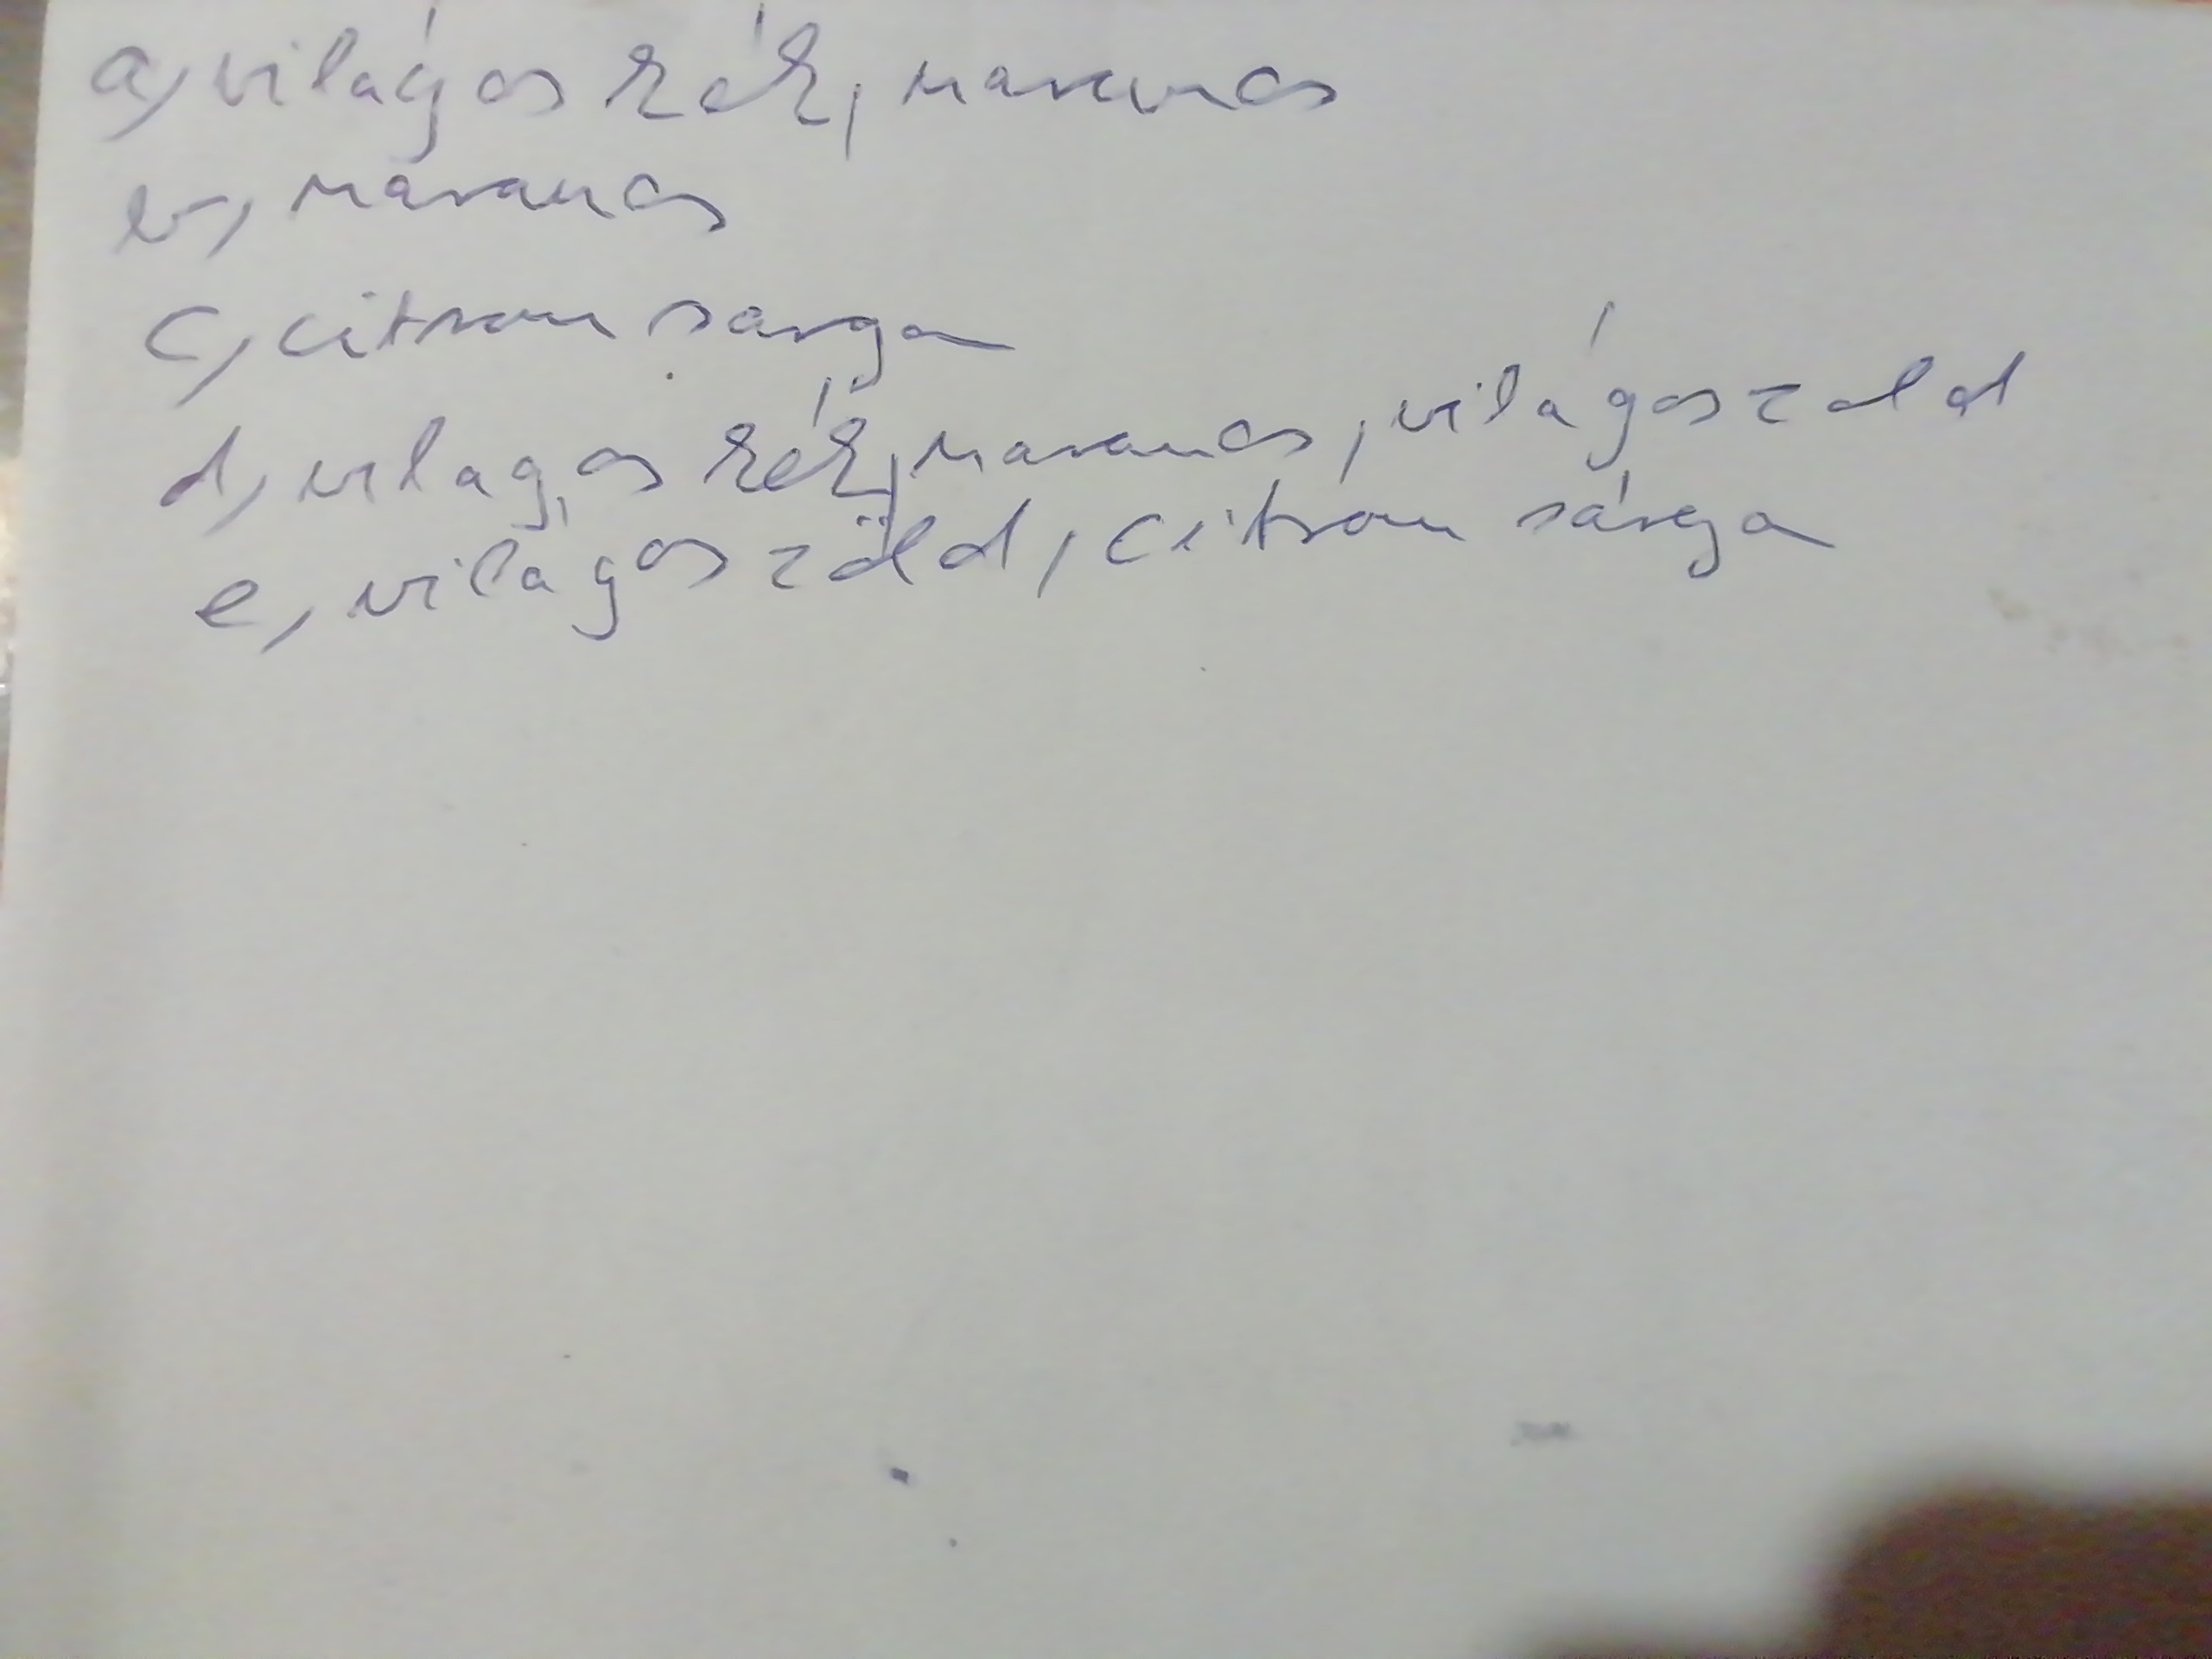 a, világos kék, narancs
b, narancs
c, citrom sarga
d, vilagos kék, narancs, világos zold
e, világos zöld, citrom sárga